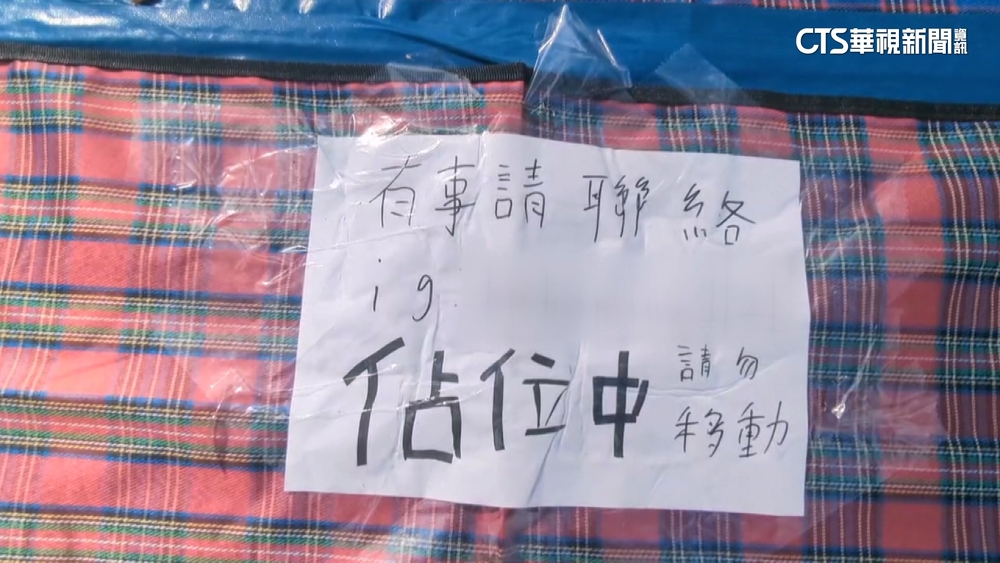 CTS華視新聞資訊
有事請聯絡
ig.
佔位中
請勿
移動